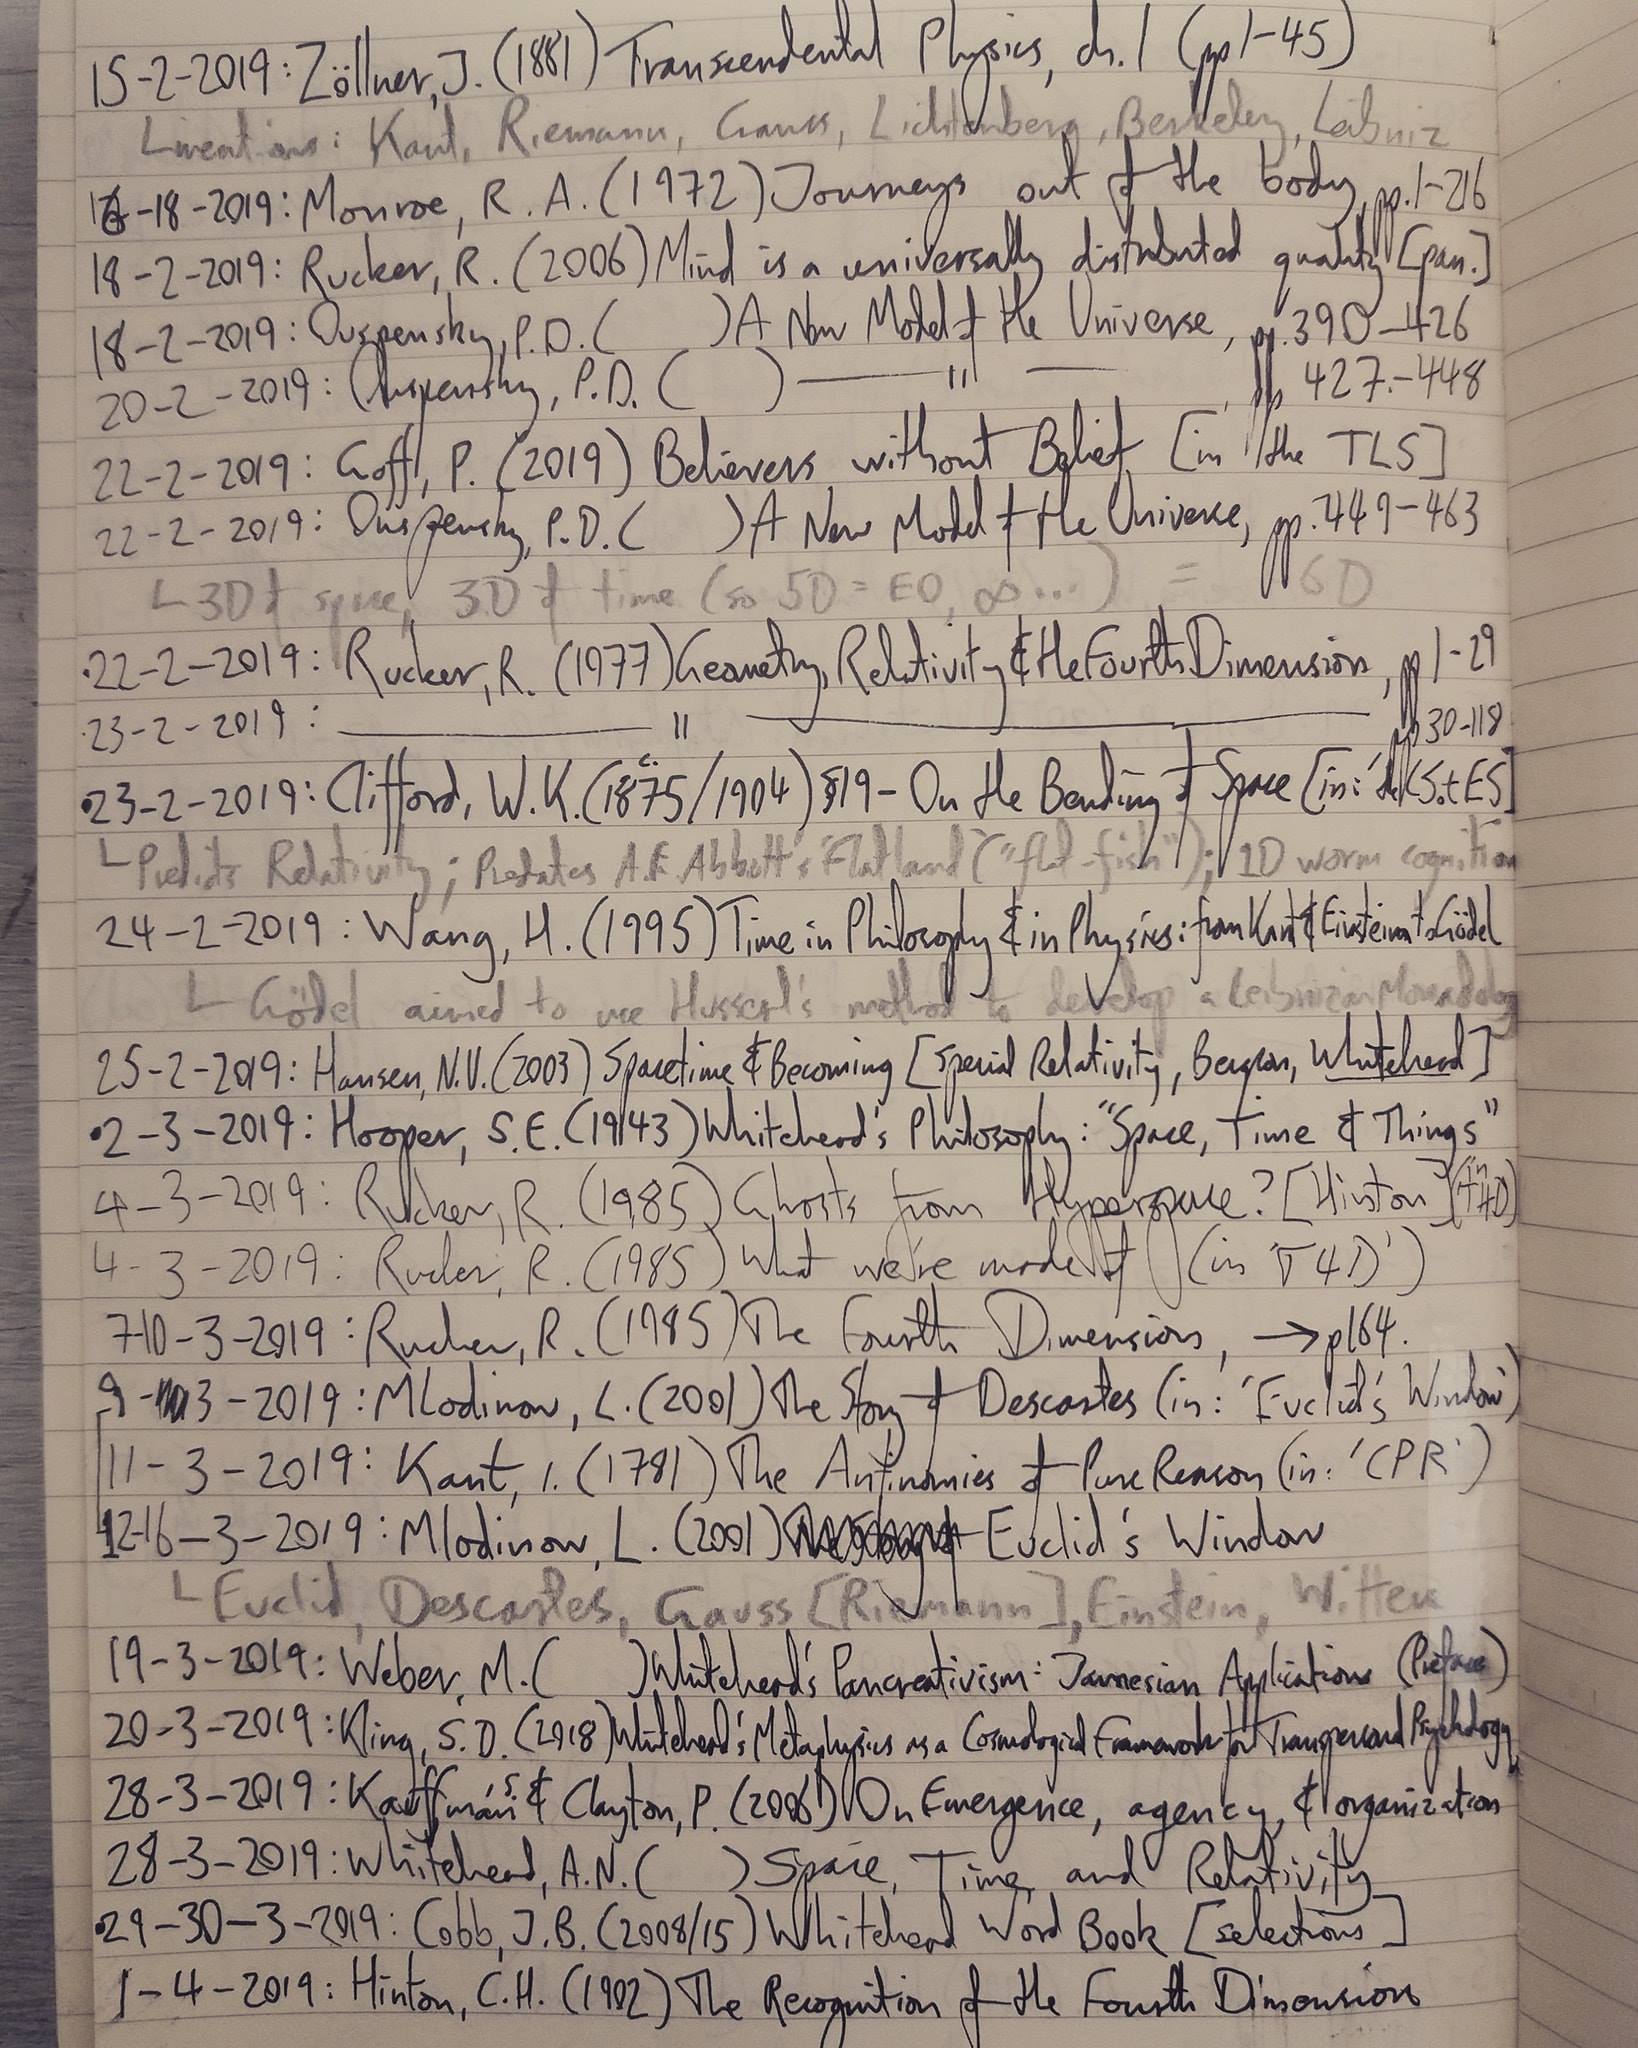 15-2-2019: Zöllner, J. (1881) Transcendental Physics, ch. 1 (pp1-45)
mentions: Kant, Riemann, Gauss, Lichtenberg, Berkeley, Leibniz
16-18-2019: Monroe, R. A. (1972) Journeys out of the body, pp. 1-216
18-2-2019: Rucker, R. (2006) Mind is a universally distributed quality [pan.]
18-2-2019: Ouspensky, P.D. ( ) A New Model of the Universe, pp. 390-426
20-2-2019: Ouspensky, P.D. ( ) — " — pp 427-448
22-2-2019: Goff, P. (2019) Believers without Belief [in the TLS]
22-2-2019: Ouspensky, P.D. ( ) A New Model of the Universe, pp. 449-463
3D of space, 3D of time (so 5D = E0, ∞...) = 6D
•22-2-2019: Rucker, R. (1977) Geometry, Relativity & the Fourth Dimension, pp 1-29
23-2-2019: — " — pp 30-118
•23-2-2019: Clifford, W.K. (c. 1875/1904) §19 - On the Bending of Space [in: 'the CS.t.ES]
Predicts Relativity; Predates A.E. Abbott's 'Flatland' ("flat-fish"); 1D worm cognition
24-2-2019: Wang, H. (1995) Time in Philosophy & in Physics: from Kant & Einstein to Gödel
Gödel aimed to use Husserl's method to develop a Leibnizian Monadology
25-2-2019: Hansen, N.V. (2003) Spacetime & Becoming [Special Relativity, Bergson, Whitehead]
•2-3-2019: Hooper, S.E. (1943) Whitehead's Philosophy: "Space, Time & Things"
4-3-2019: Rucker, R. (1985) Ghosts from Hyperspace? [Hinton] (in 'T4D')
4-3-2019: Rucker, R. (1985) What we're made of (in 'T4D')
7-10-3-2019: Rucker, R. (1985) The Fourth Dimension, → p164.
9-3-2019: Mlodinow, L. (2001) The Story of Descartes (in: 'Euclid's Window')
11-3-2019: Kant, I. (1781) The Antinomies of Pure Reason (in: 'CPR')
12-16-3-2019: Mlodinow, L. (2001) Euclid's Window
Euclid, Descartes, Gauss [Riemann], Einstein, Witten
19-3-2019: Weber, M. ( ) Whitehead's Pancreativism: Jamesian Applications (Preface)
20-3-2019: Kling, S.D. (2018) Whitehead's Metaphysics as a Cosmological Framework for Transpersonal Psychology
28-3-2019: Kauffman, S. & Clayton, P. (2006) On Emergence, agency, & organization
28-3-2019: Whitehead, A.N. ( ) Space, Time, and Relativity
•29-30-3-2019: Cobb, J.B. (2008/15) Whitehead Word Book [selections]
1-4-2019: Hinton, C.H. (1902) The Recognition of the Fourth Dimension